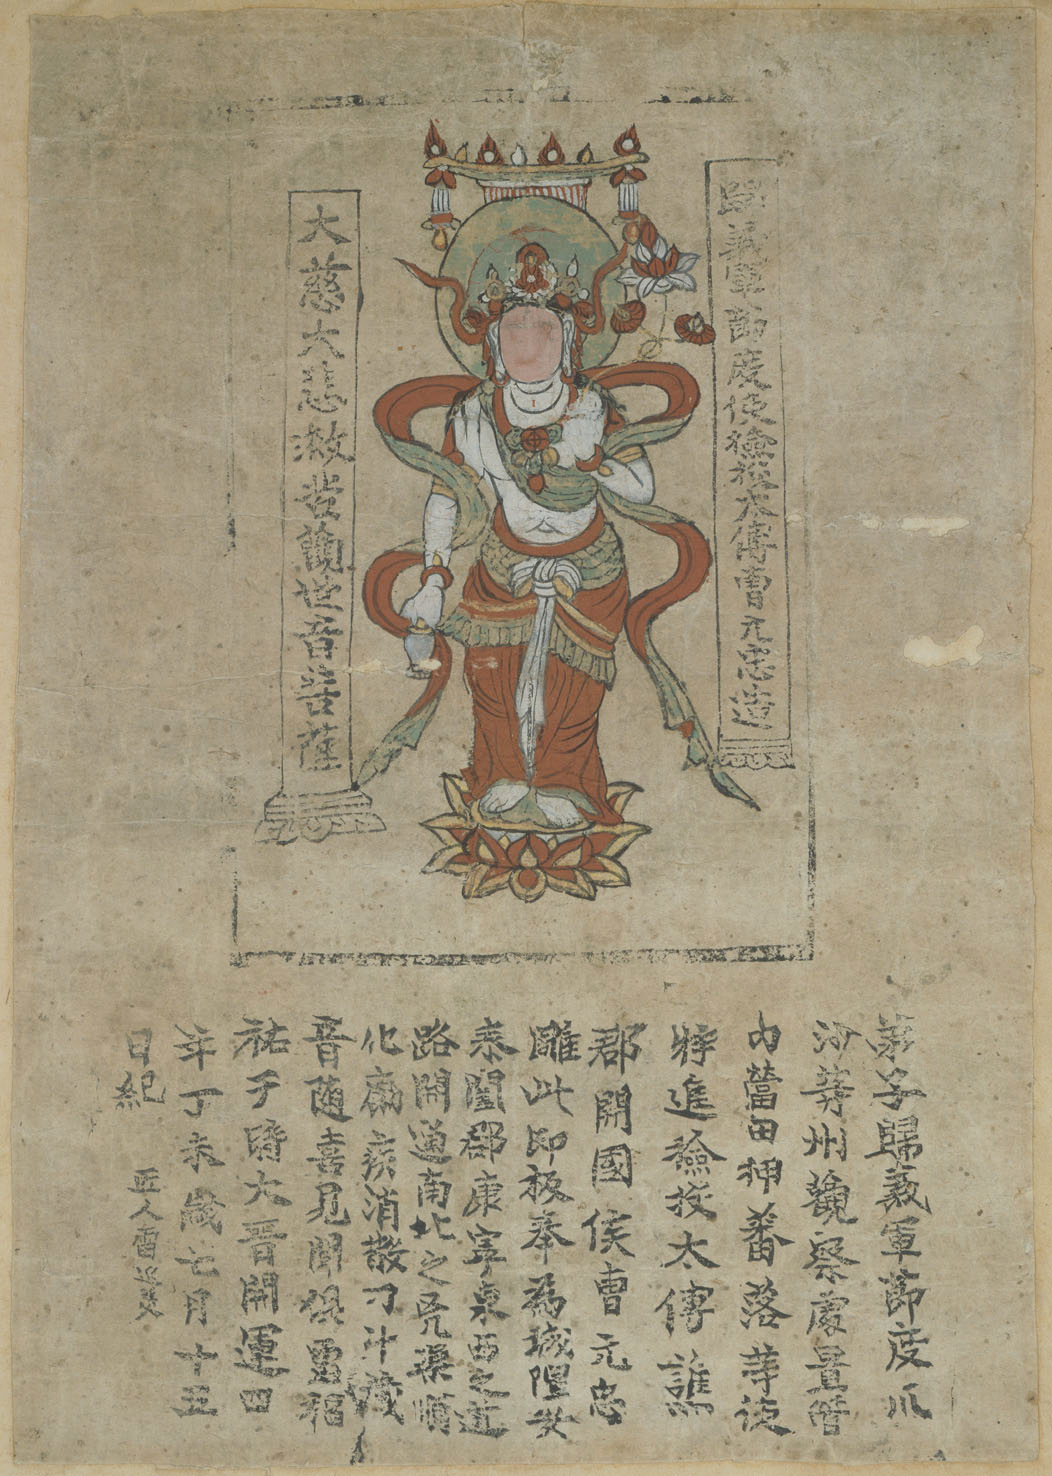 歸義軍節度使檢校太傅曹元忠造
大慈大悲救苦觀世音菩薩
弟子歸義軍節度瓜
沙等州觀察處置管
內營田押蕃落等使
特進檢校太傅譙
郡開國侯曹元忠
雕此印板奉為城隍安
泰闔郡康寧東西之道
路開通南北之兇渠順
化癘疾消散刁斗藏
音隨喜見聞俱霑福
祐于時大晉開運四
年丁未歲七月十五
日紀
匠人雷延美